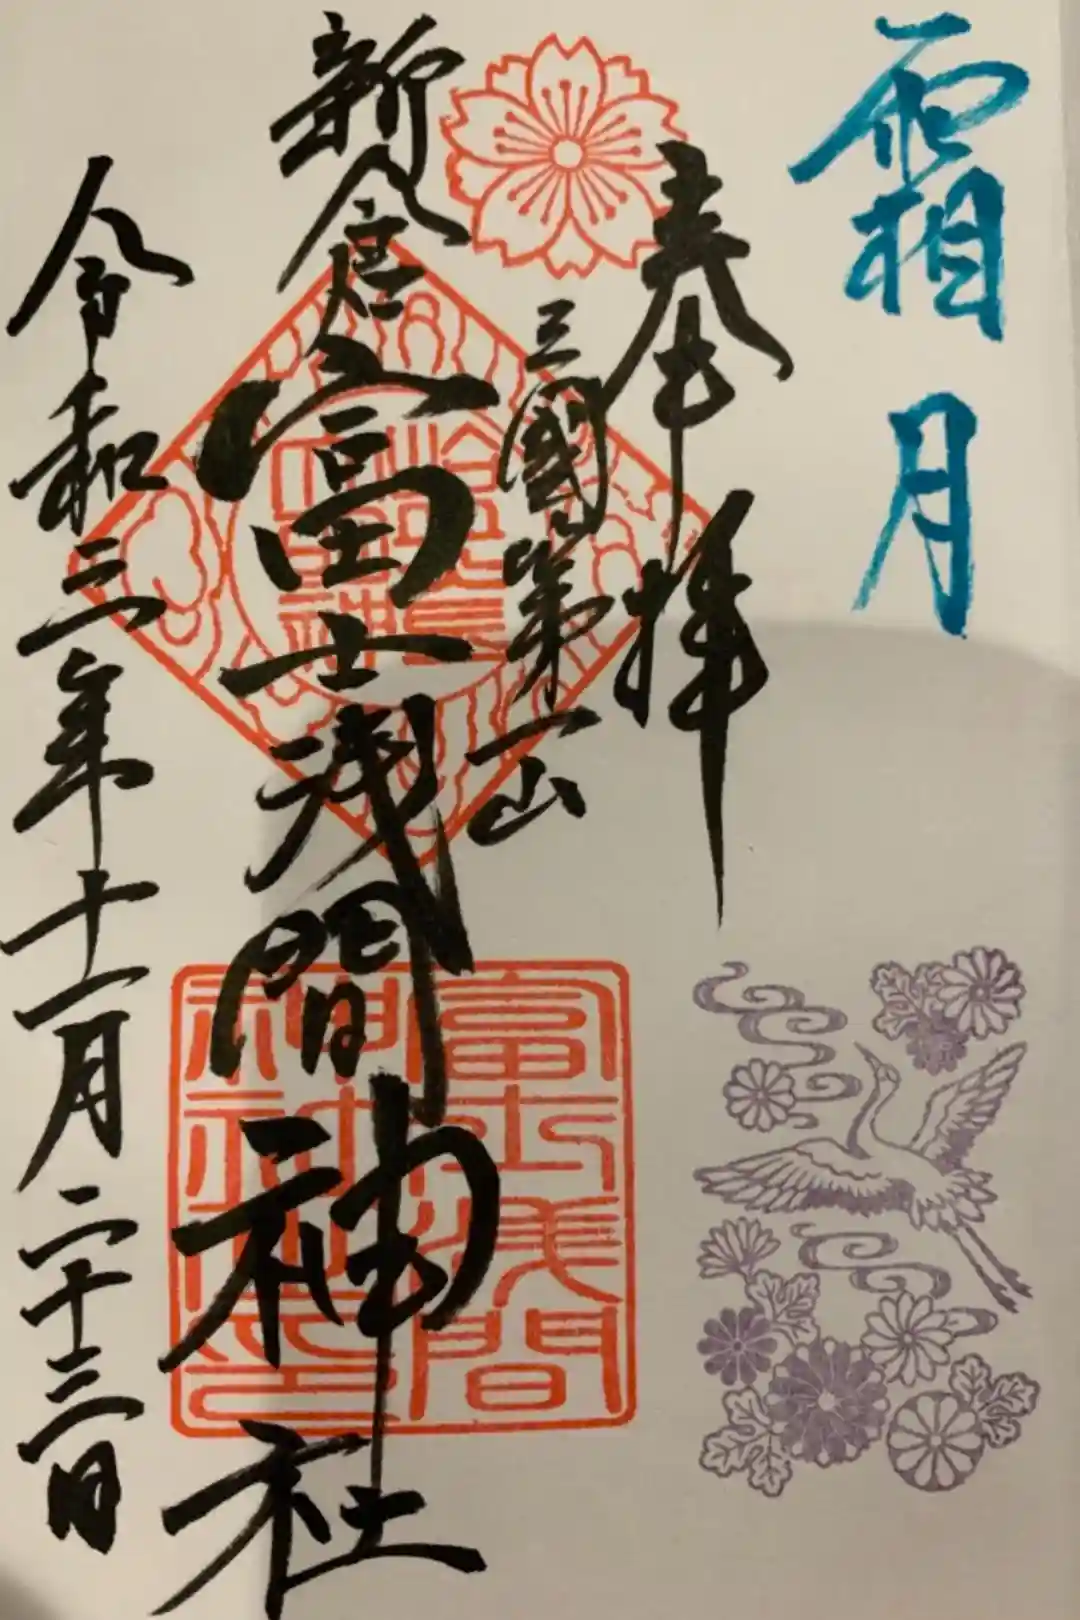 霜月
奉拝
三國第一山
新倉富士浅間神社
令和三年十一月二十三日
富士浅間
神社印